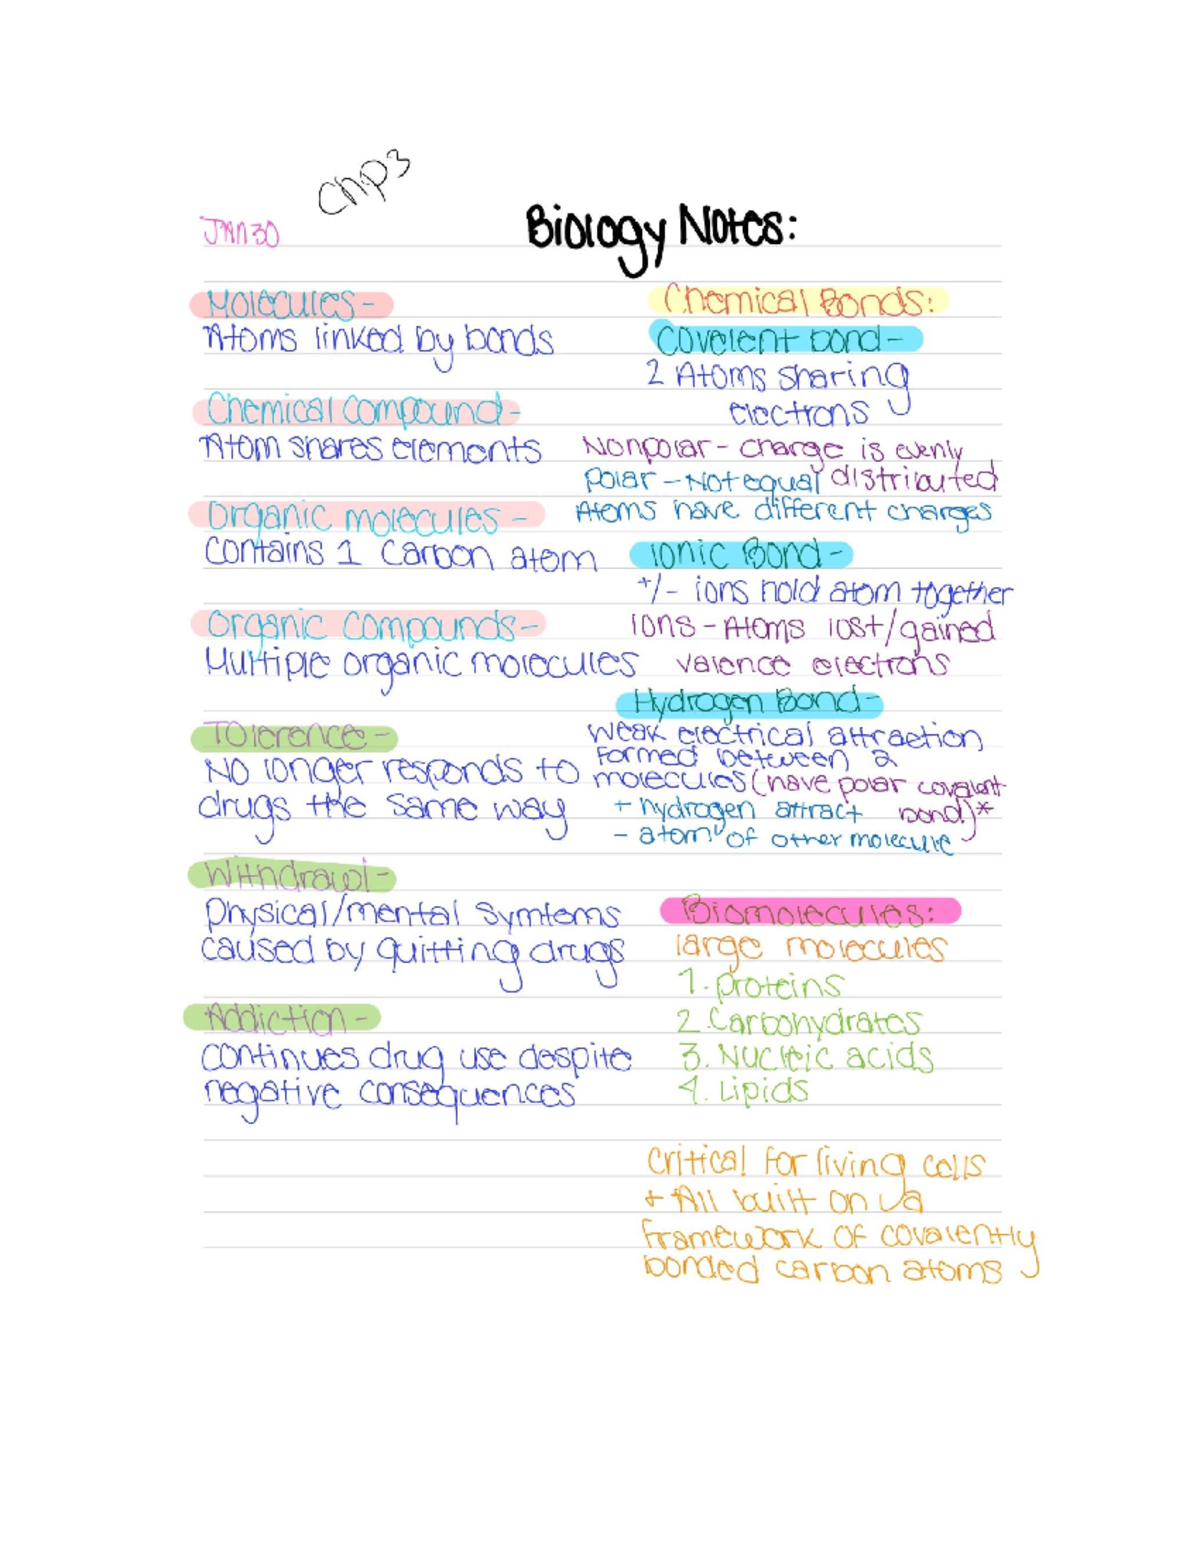 Chp 3
JAN 30
Biology Notes:
Molecules-
Atoms linked by bonds
Chemical compound-
Atom shares elements
Organic molecules-
contains 1 carbon atom
Organic compounds-
Multiple organic molecules
Tolerence-
No longer responds to
drugs the same way
Withdrawl-
Physical/mental symtems
caused by quitting drugs
Addiction-
continues drug use despite
negative consequences
Chemical Bonds:
Covelent bond-
2 Atoms sharing
electrons
Nonpolar- charge is evenly
distributed
Polar-Not equal
Atoms have different charges
Ionic Bond-
+/- ions hold atom together
Ions-Atoms lost/gained
valence electrons
Hydrogen Bond-
Weak electrical attraction
formed between 2
molecules (have polar covalent
bond)*
+ hydrogen attract
- atom of other molecule
Biomolecules:
large molecules
1. proteins
2. Carbohydrates
3. Nucleic acids
4. Lipids
Critical for living cells
+ All built on a
framework of covalently
bonded carbon atoms